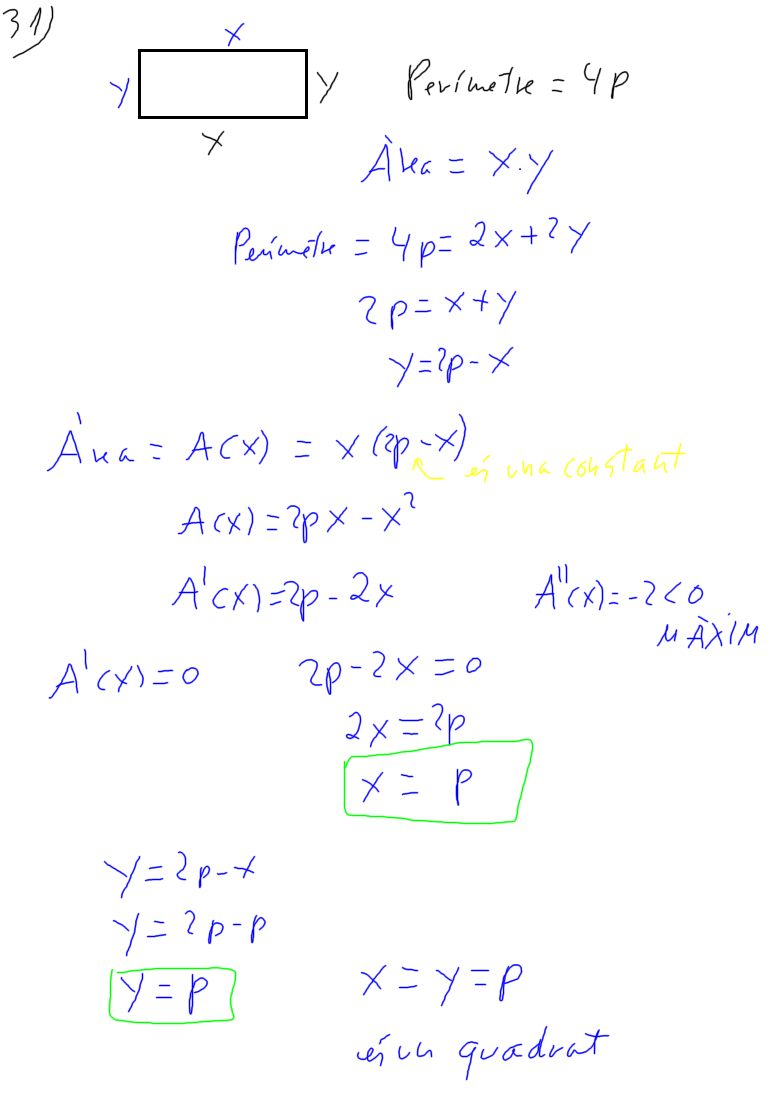 31)
x
y
y
x
Perímetre = 4p
Àrea = x·y
Perímetre = 4p = 2x + 2y
2p = x + y
y = 2p - x
Àrea = A(x) = x (2p - x)
és una constant
A(x) = 2px - x²
A'(x) = 2p - 2x
A''(x) = -2 < 0
MÀXIM
A'(x) = 0
2p - 2x = 0
2x = 2p
x = p
y = 2p - x
y = 2p - p
y = p
x = y = p
és un quadrat